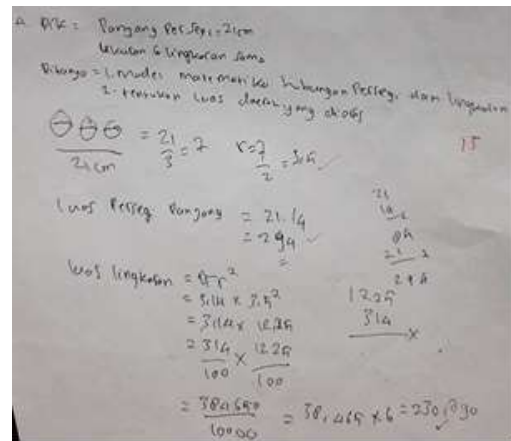 A. Dik = Panjang Persegi = 21 cm
ukuran 6 lingkaran sama
Ditanya = 1. model matematika hubungan Persegi dan lingkaran
2. tentukan luas daerah yang diarsir
= 21/3 = 7 r = 7/2 = 3,5 ✓
21 cm
15
Luas Persegi Panjang = 21.14
= 294 ✓
=
21
14 x
84
21
294
luas lingkaran = πr²
= 3,14 x 3,5²
= 3,14 x 12,25
= 314/100 x 1225/100
1225
314 x
= 384650/10000 = 38,465 x 6 = 230,790